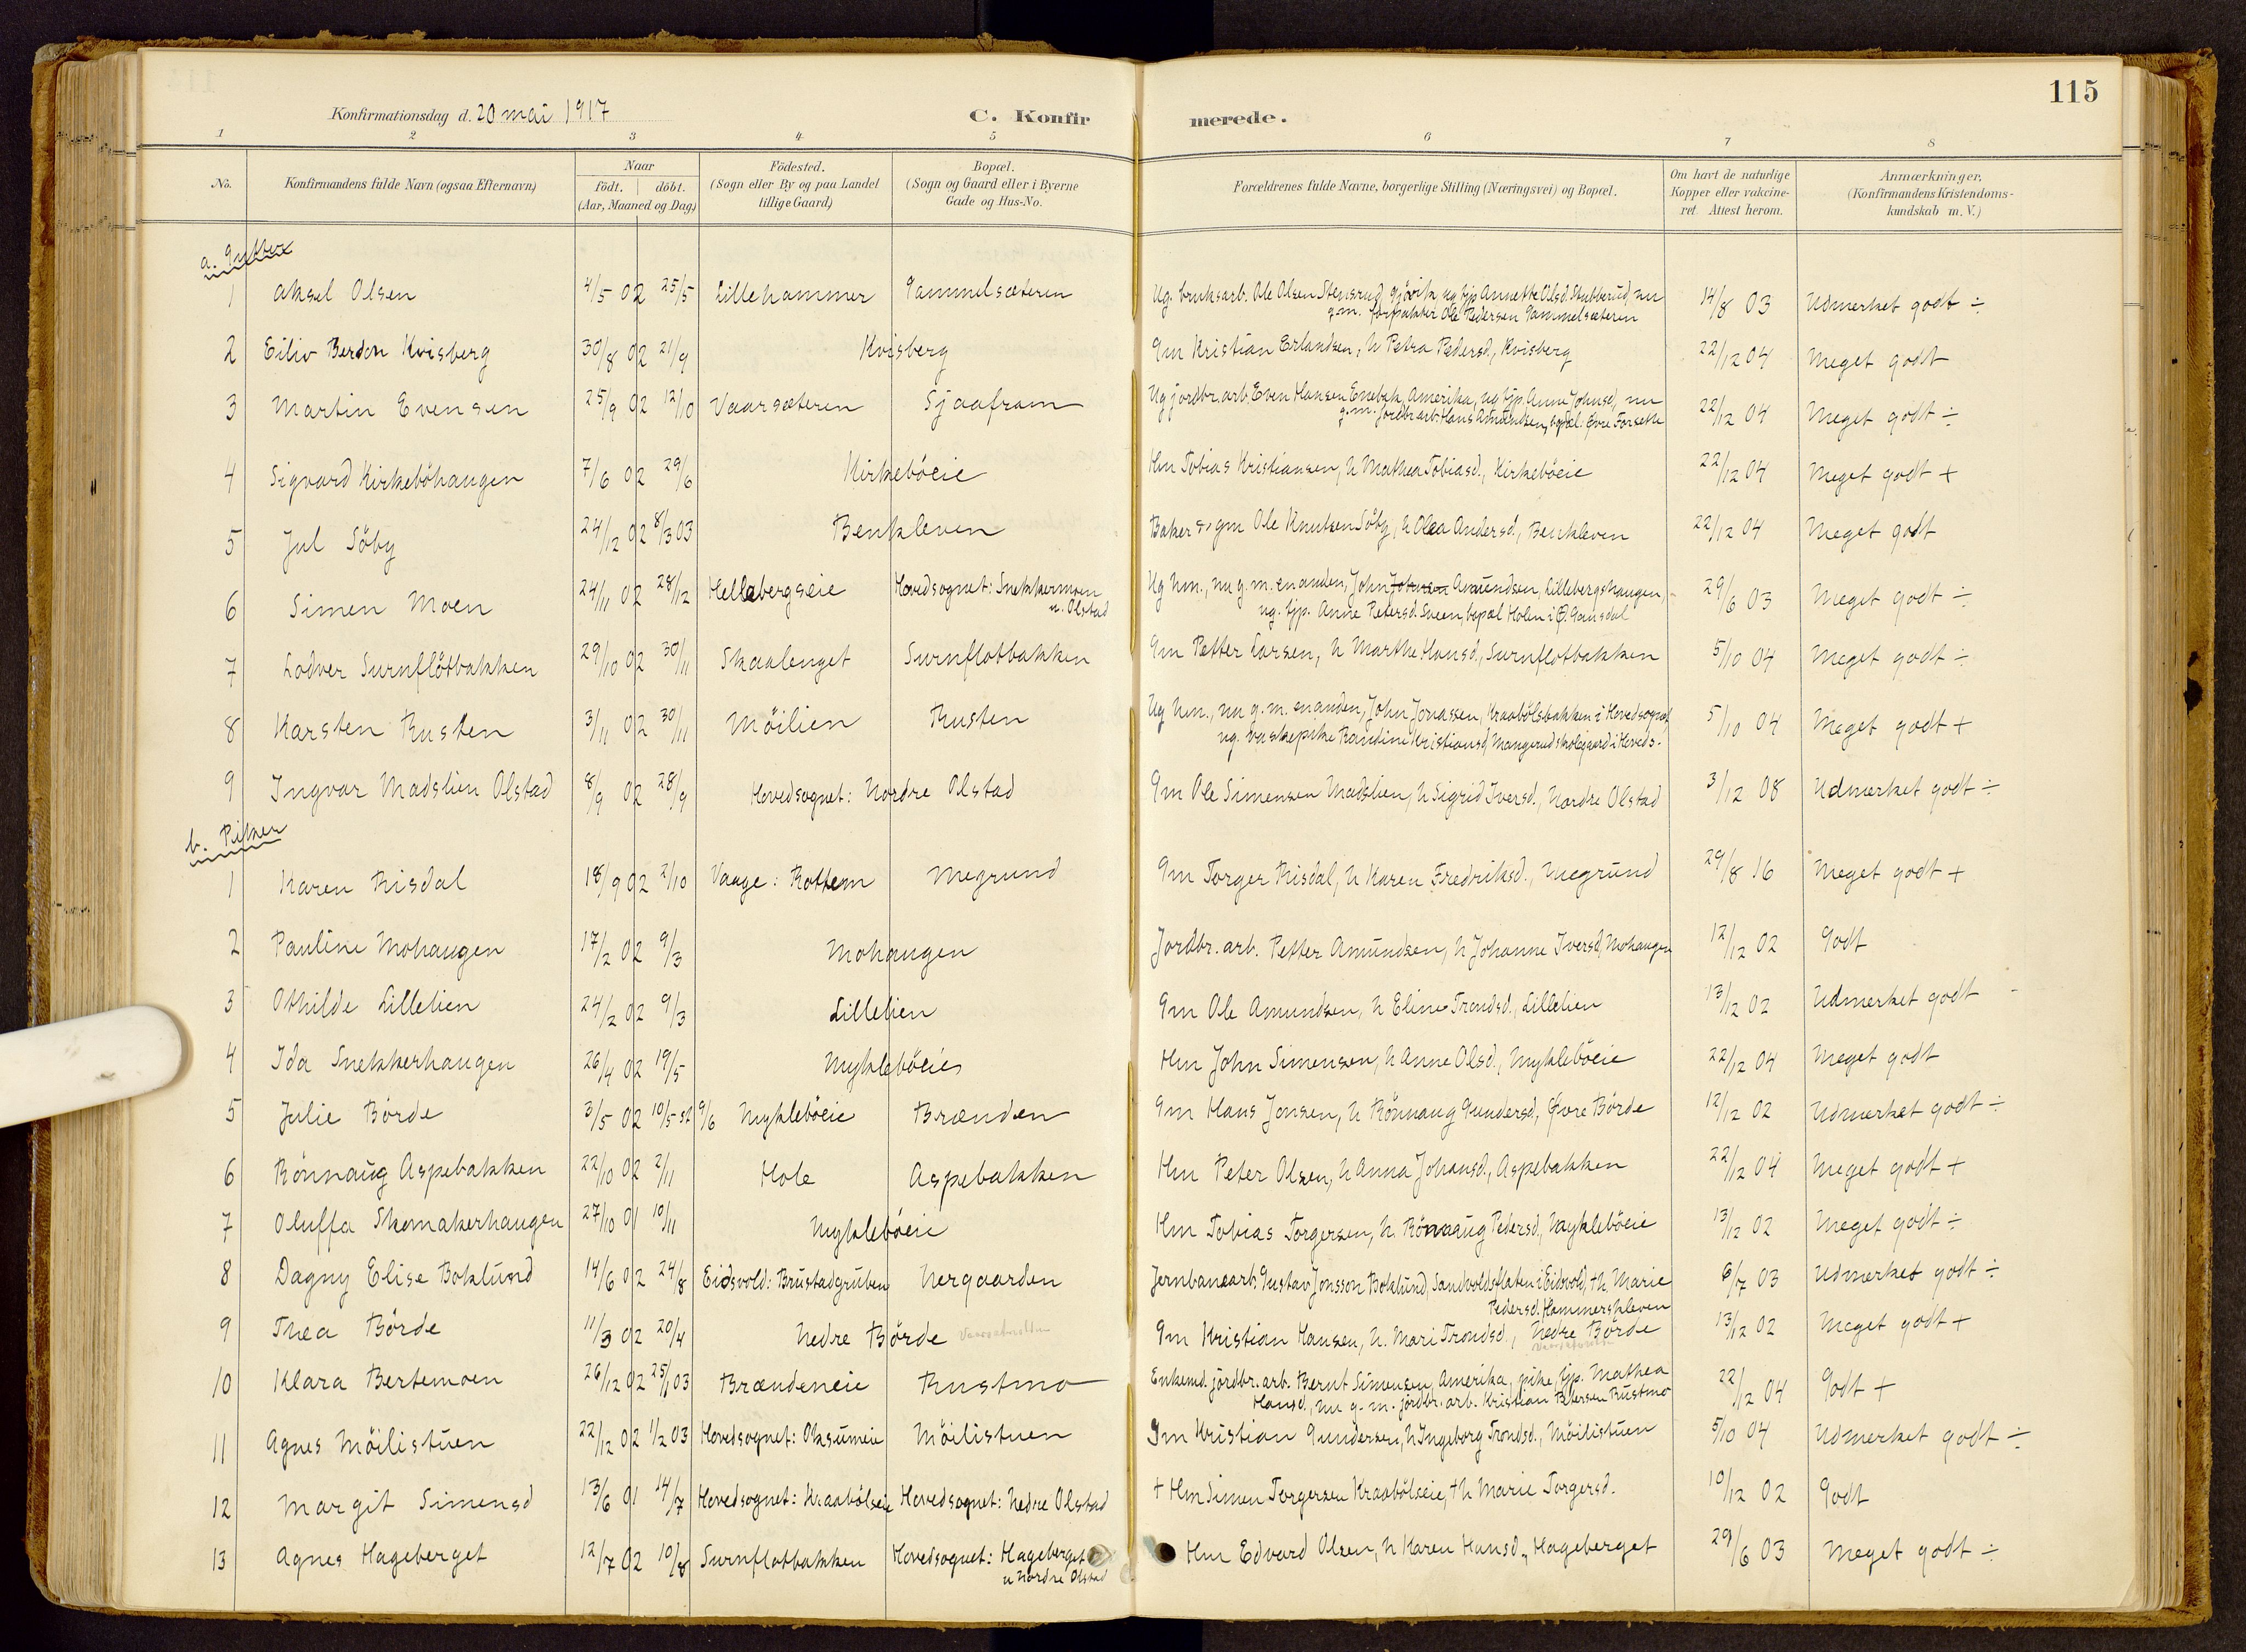 115
Konfirmationsdag d. 20 mai 1917
C. Konfirmerede.
1 2 3 4 5 6 7 8
No.
Konfirmandens fulde Navn (ogsaa Efternavn)
Naar
født. døbt.
(Aar, Maaned og Dag.)
Födested.
(Sogn eller By og paa Landet
tillige Gaard)
Bopæl.
(Sogn og Gaard eller i Byerne
Gade og Hus-No.
Forældrenes fulde Navne, borgerlige Stilling (Næringsvei) og Bopæl.
Om havt de naturlige
Kopper eller vakcine-
ret. Attest herom.
Anmærkninger.
(Konfirmandens Kristendoms-
kundskab m. V.)
a. Gutter
1 Aksel Olsen 4/5 02 25/5 Lillehammer Gammelsæteren Ug. bruksarb. Ole Olsen Stensrud, Gjövik, ug. tjp. Annette Olsd. Stubberud, nu 14/8 03 Udmerket godt ÷
g.m. forpakter Ole Pedersen Gammelsæteren
2 Eiliv Berdon Kvisberg 30/8 02 21/9 Kvisberg Gm Kristian Erlandsen, h Petra Pedersd., Kvisberg 22/12 04 Meget godt
3 Martin Evensen 25/9 02 12/10 Vaarsæteren Sjaafram Ug jordbr.arb. Even Hansen Enebak, Amerika, ug tjp. Anne Johnsd, nu 22/12 04 Meget godt ÷
g.m. jordbr.arb. Hans Amundsen, bopæl: Øvre Forsette
4 Sigvard Kirkeböhaugen 7/6 02 29/6 Kirkeböeie Hm Tobias Kristiansen, h Mathea Tobiasd., Kirkeböeie 22/12 04 Meget godt +
5 Jul Söby 24/12 02 8/3 03 Benkleven Baker og gm Ole Knutsen Söby, h Olea Andersd., Benkleven 22/12 04 Meget godt
6 Simen Moen 24/11 02 28/12 Hellebergseie Hovedsognet: Snekkermoen Ug hm., nu g.m. en anden, John Johnsen Amundsen, Lillebergshaugen, 29/6 03 Meget godt ÷
u. Olstad ug. tjp. Anne Petersd. Sveen, bopæl Holen i Ø. Gausdal
7 Lodver Surnflötbakken 29/10 02 30/11 Skaalenget Surnflotbakken Gm Petter Larsen, h Marthe Hansd., Surnflotbakken 5/10 04 Meget godt ÷
8 Karsten Rusten 3/11 02 30/11 Möilien Rusten Ug hm., nu g.m. en anden, John Jonassen, Kraabölsbakken i Hovedsognet, 5/10 04 Meget godt +
ug. vaskepike Randine Kristiansd, Mangerud skolegaard i Hoveds.
9 Ingvar Madslien Olstad 8/9 02 28/9 Hovedsognet: Nordre Olstad Gm Ole Simensen Madslien, h Sigrid Iversd., Nordre Olstad 3/12 08 Udmerket godt ÷
b. Piker
1 Karen Risdal 18/9 02 2/10 Vaage: Rottem Megrund Gm Torger Risdal, h Karen Fredriksd., Megrund 29/8 16 Meget godt +
2 Pauline Mohaugen 17/2 02 9/3 Mohaugen Jordbr. arb. Petter Amundsen, h Johanne Iversd, Mohaugen 12/12 02 Godt
3 Othilde Lillelien 24/2 02 9/3 Lillelien Gm Ole Amundsen, h Eline Trondsd., Lillelien 13/12 02 Udmerket godt
4 Ida Snekkerhaugen 26/4 02 19/5 Mykleböeie Hm John Simensen, h Anne Olsd., Mykleböeie 22/12 04 Meget godt
5 Julie Börde 3/5 02 10/5 st 9/6 Mykleböeie Brænden Gm Hans Jonsen, h Rönnaug Gundersd, Øvre Börde 12/12 02 Udmerket godt ÷
6 Rönnaug Aspebakken 22/10 02 2/11 Hole Aspebakken Hm Peter Olsen, h Anna Johansd., Aspebakken 22/12 04 Meget godt +
7 Oluffa Skomakerhaugen 27/10 01 10/11 Mykleböeie Hm Tobias Torgersen, h. Rönnaug Pedersd., Mykleböeie 13/12 02 Meget godt ÷
8 Dagny Elise Boklund 14/6 02 24/8 Eidsvold: Brustadgruben Nergaarden Jernbanearb. Gustav Jonsson Boklund, Sandvoldsflaten i Eidsvold, + h. Marie 6/7 03 Udmerket godt ÷
Pedersd. Hammerskleven
9 Thea Börde 11/3 02 20/4 Nedre Börde Gm Kristian Hansen, h. Mari Trondsd., Nedre Börde 13/12 02 Meget godt +
10 Klara Bertemoen 26/12 02 25/1 03 Brændeneie Rustmo Enkemd. jordbr. arb. Bernt Simensen, Amerika, pike, tjp. Mathea 22/12 04 Godt +
Hansd., nu g.m. jordbr. arb. Kristian Petersen Rustmo
11 Agnes Möilistuen 22/12 02 1/2 03 Hovedsognet: Oksumeie Möilistuen Gm Kristian Gundersen, h Ingeborg Trondsd., Möilistuen 5/10 04 Udmerket godt ÷
12 Margit Simensd 13/6 01 14/7 Hovedsognet: Kraabölseie Hovedsognet: Nedre Olstad + Hm Simen Torgersen Kraabölseie, + h Marie Torgersd. 10/12 02 Godt
13 Agnes Hageberget 12/7 02 10/8 Surnflotbakken Hovedsognet: Hageberget Hm Edvard Olsen, h Karen Hansd., Hageberget 29/6 03 Meget godt ÷
u Nordre Olstad